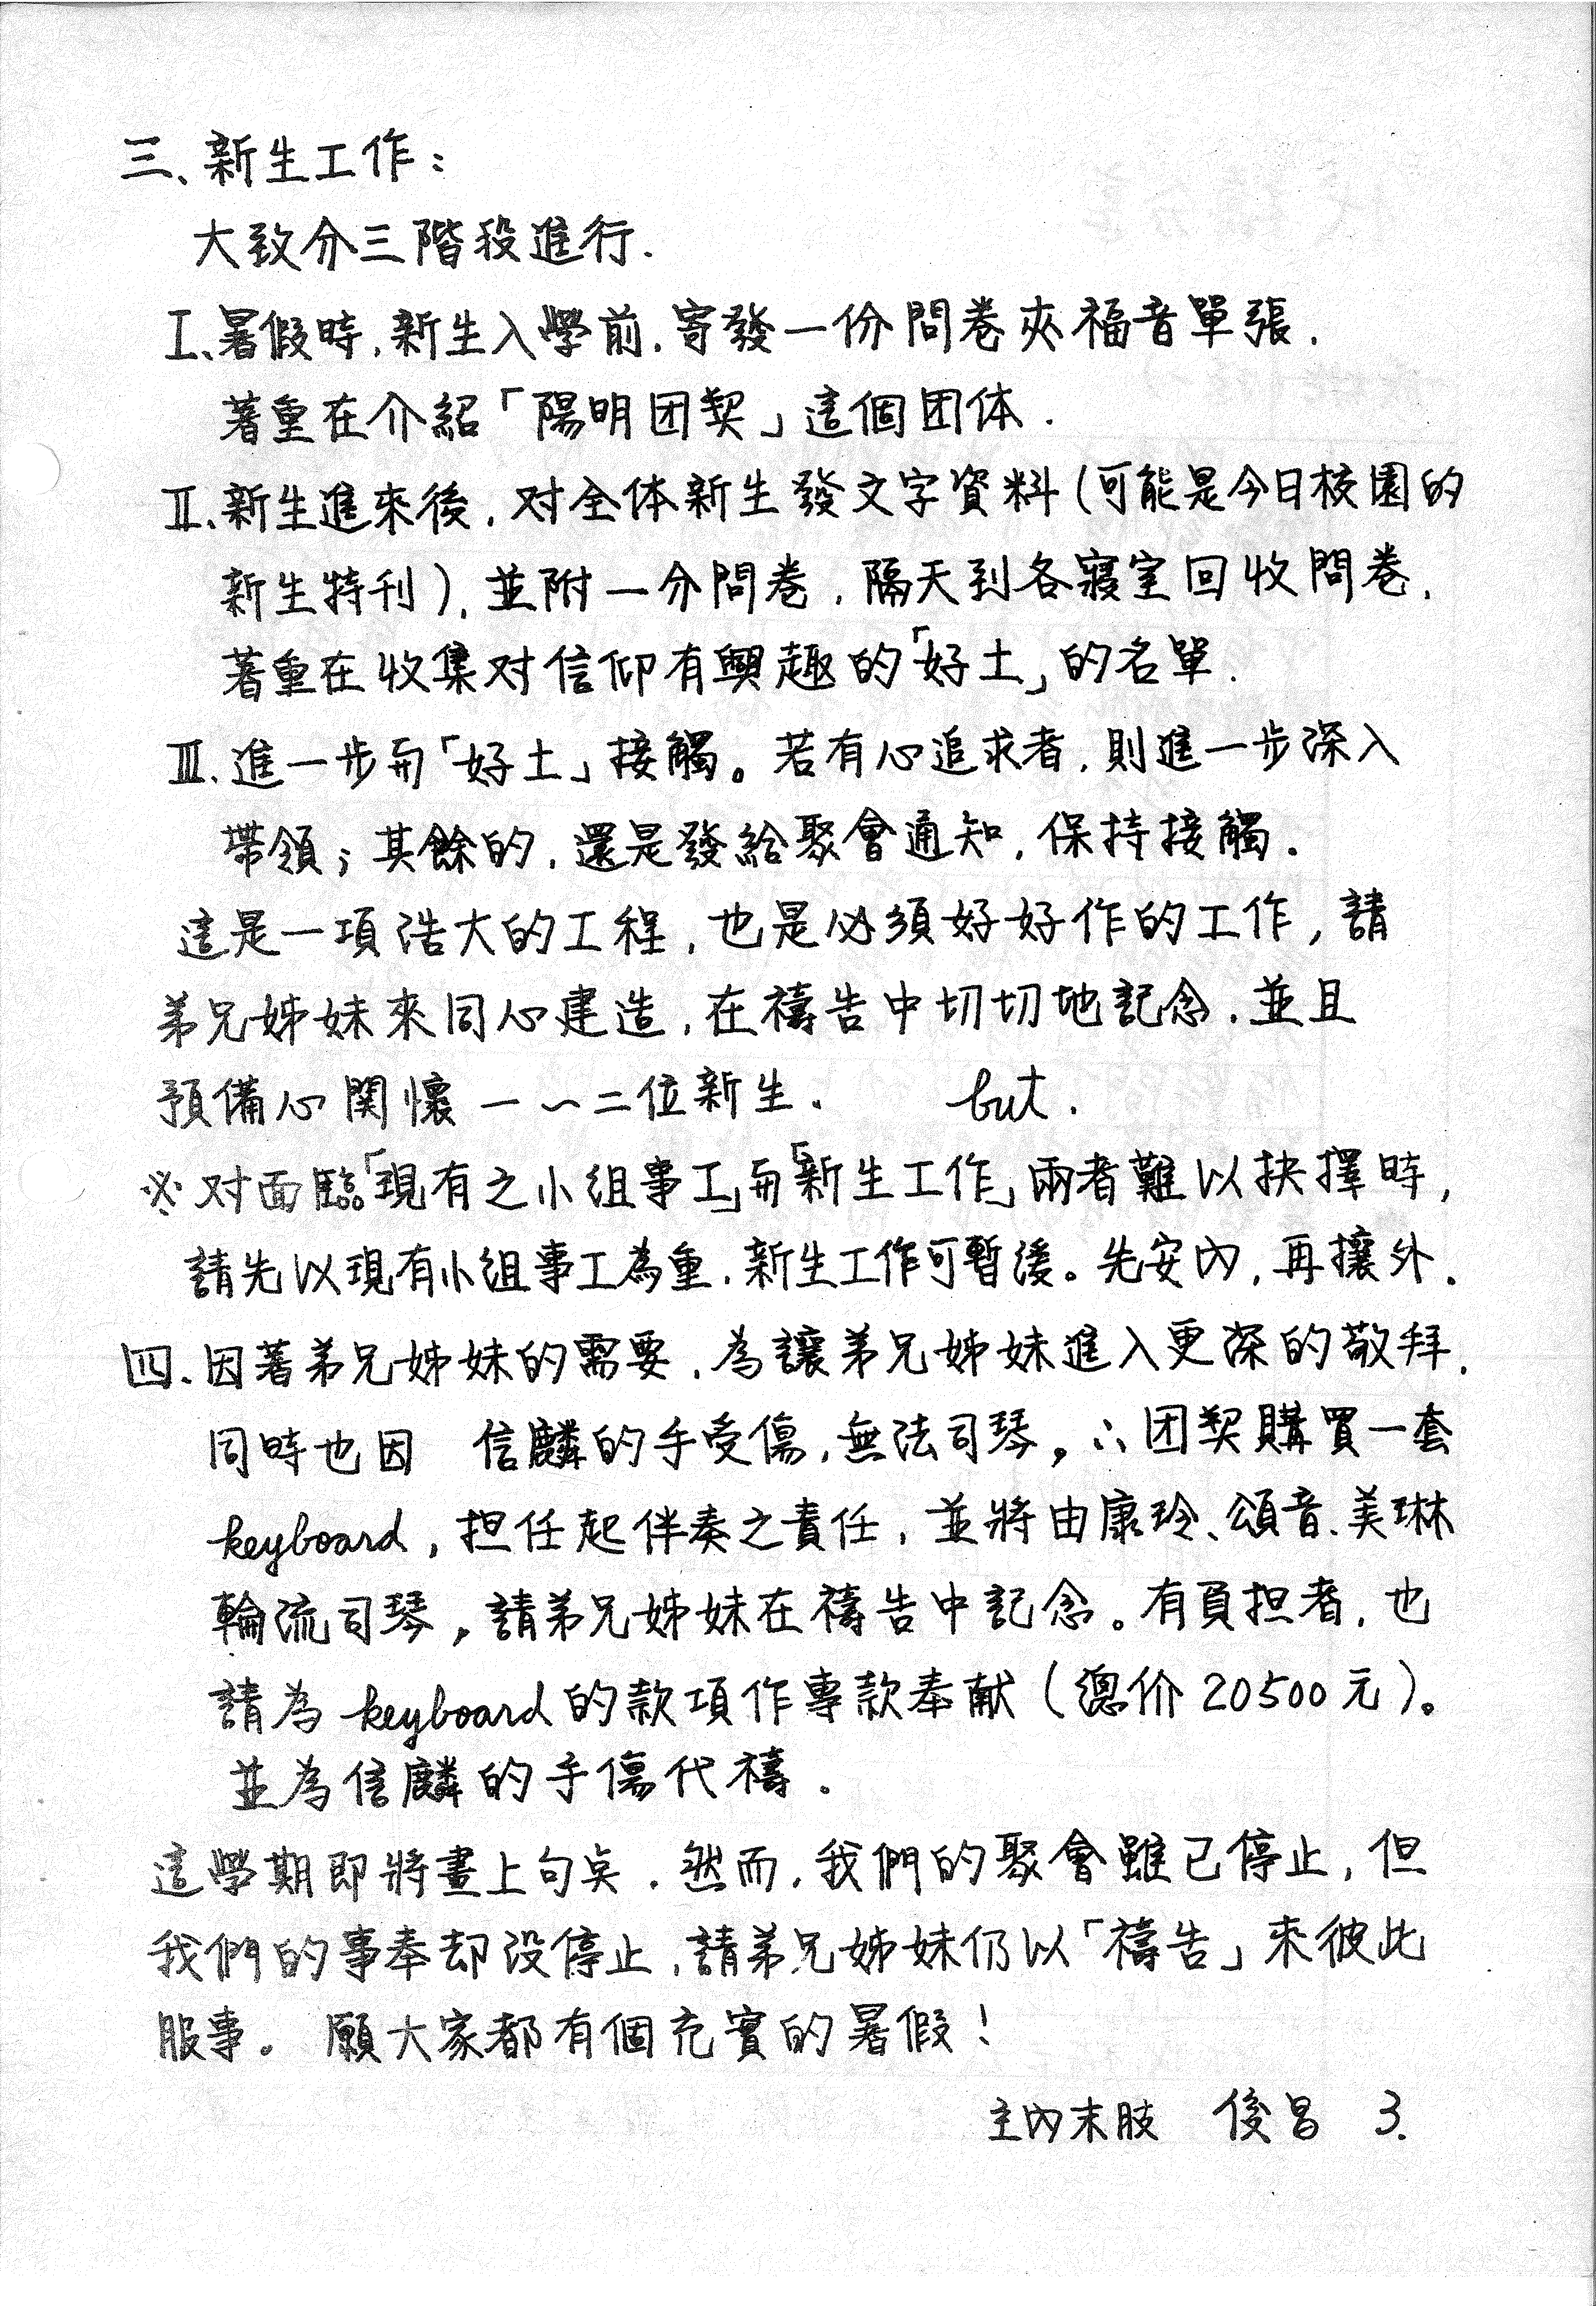 三、新生工作：
大致分三階段進行.
I、暑假時,新生入學前.寄發一份問卷夾福音單張.
著重在介紹「陽明团契」這個团体.
II、新生進來後,对全体新生發文字資料(可能是今日校園的
新生特刊),並附一分問卷,隔天到各寢室回收問卷,
著重在收集对信仰有興趣的「好土」的名單.
III、進一步而「好土」接觸。若有心追求者,則進一步深入
帶領;其餘的,還是發給聚會通知,保持接觸.
這是一項浩大的工程,也是必須好好作的工作,請
弟兄姊妹來同心建造,在禱告中切切地記念.並且
預備心関懷一~二位新生. but.
※对面臨「現有之小組事工」而「新生工作」兩者難以抉擇時,
請先以現有小組事工為重,新生工作可暫緩。先安內,再攘外.
四、因著弟兄姊妹的需要,為讓弟兄姊妹進入更深的敬拜.
同時也因 信麟的手受傷,無法司琴。∴团契購買一套
keyboard,担任起伴奏之責任,並將由康玲、頌音、美琳
輪流司琴。請弟兄姊妹在禱告中記念。有負担者,也
請為keyboard的款項作專款奉献(總价20500元)。
並為信麟的手傷代禱.
這學期即將畫上句点.然而,我們的聚會雖已停止,但
我們的事奉却没停止,請弟兄姊妹仍以「禱告」來彼此
服事。願大家都有個充實的暑假!
主內末肢 俊昌 3.